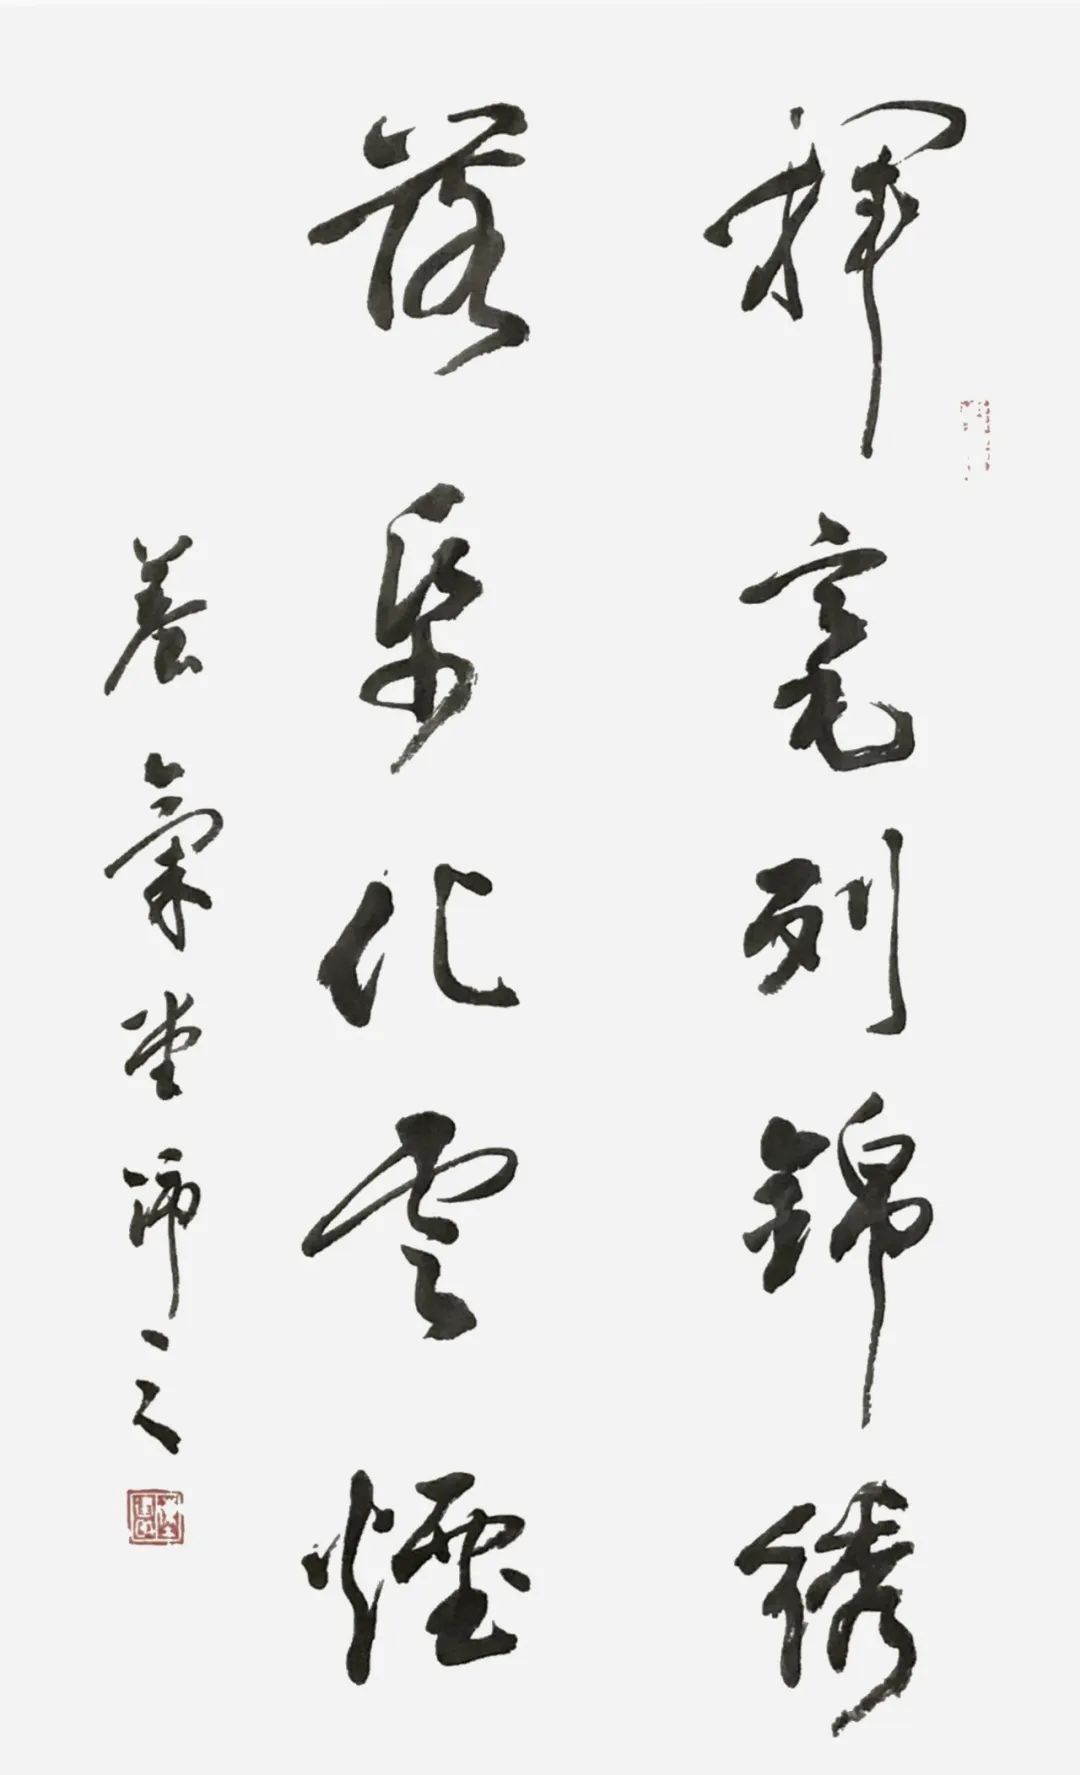 揮毫列錦繡
落紙化雲煙
養氣堂師之